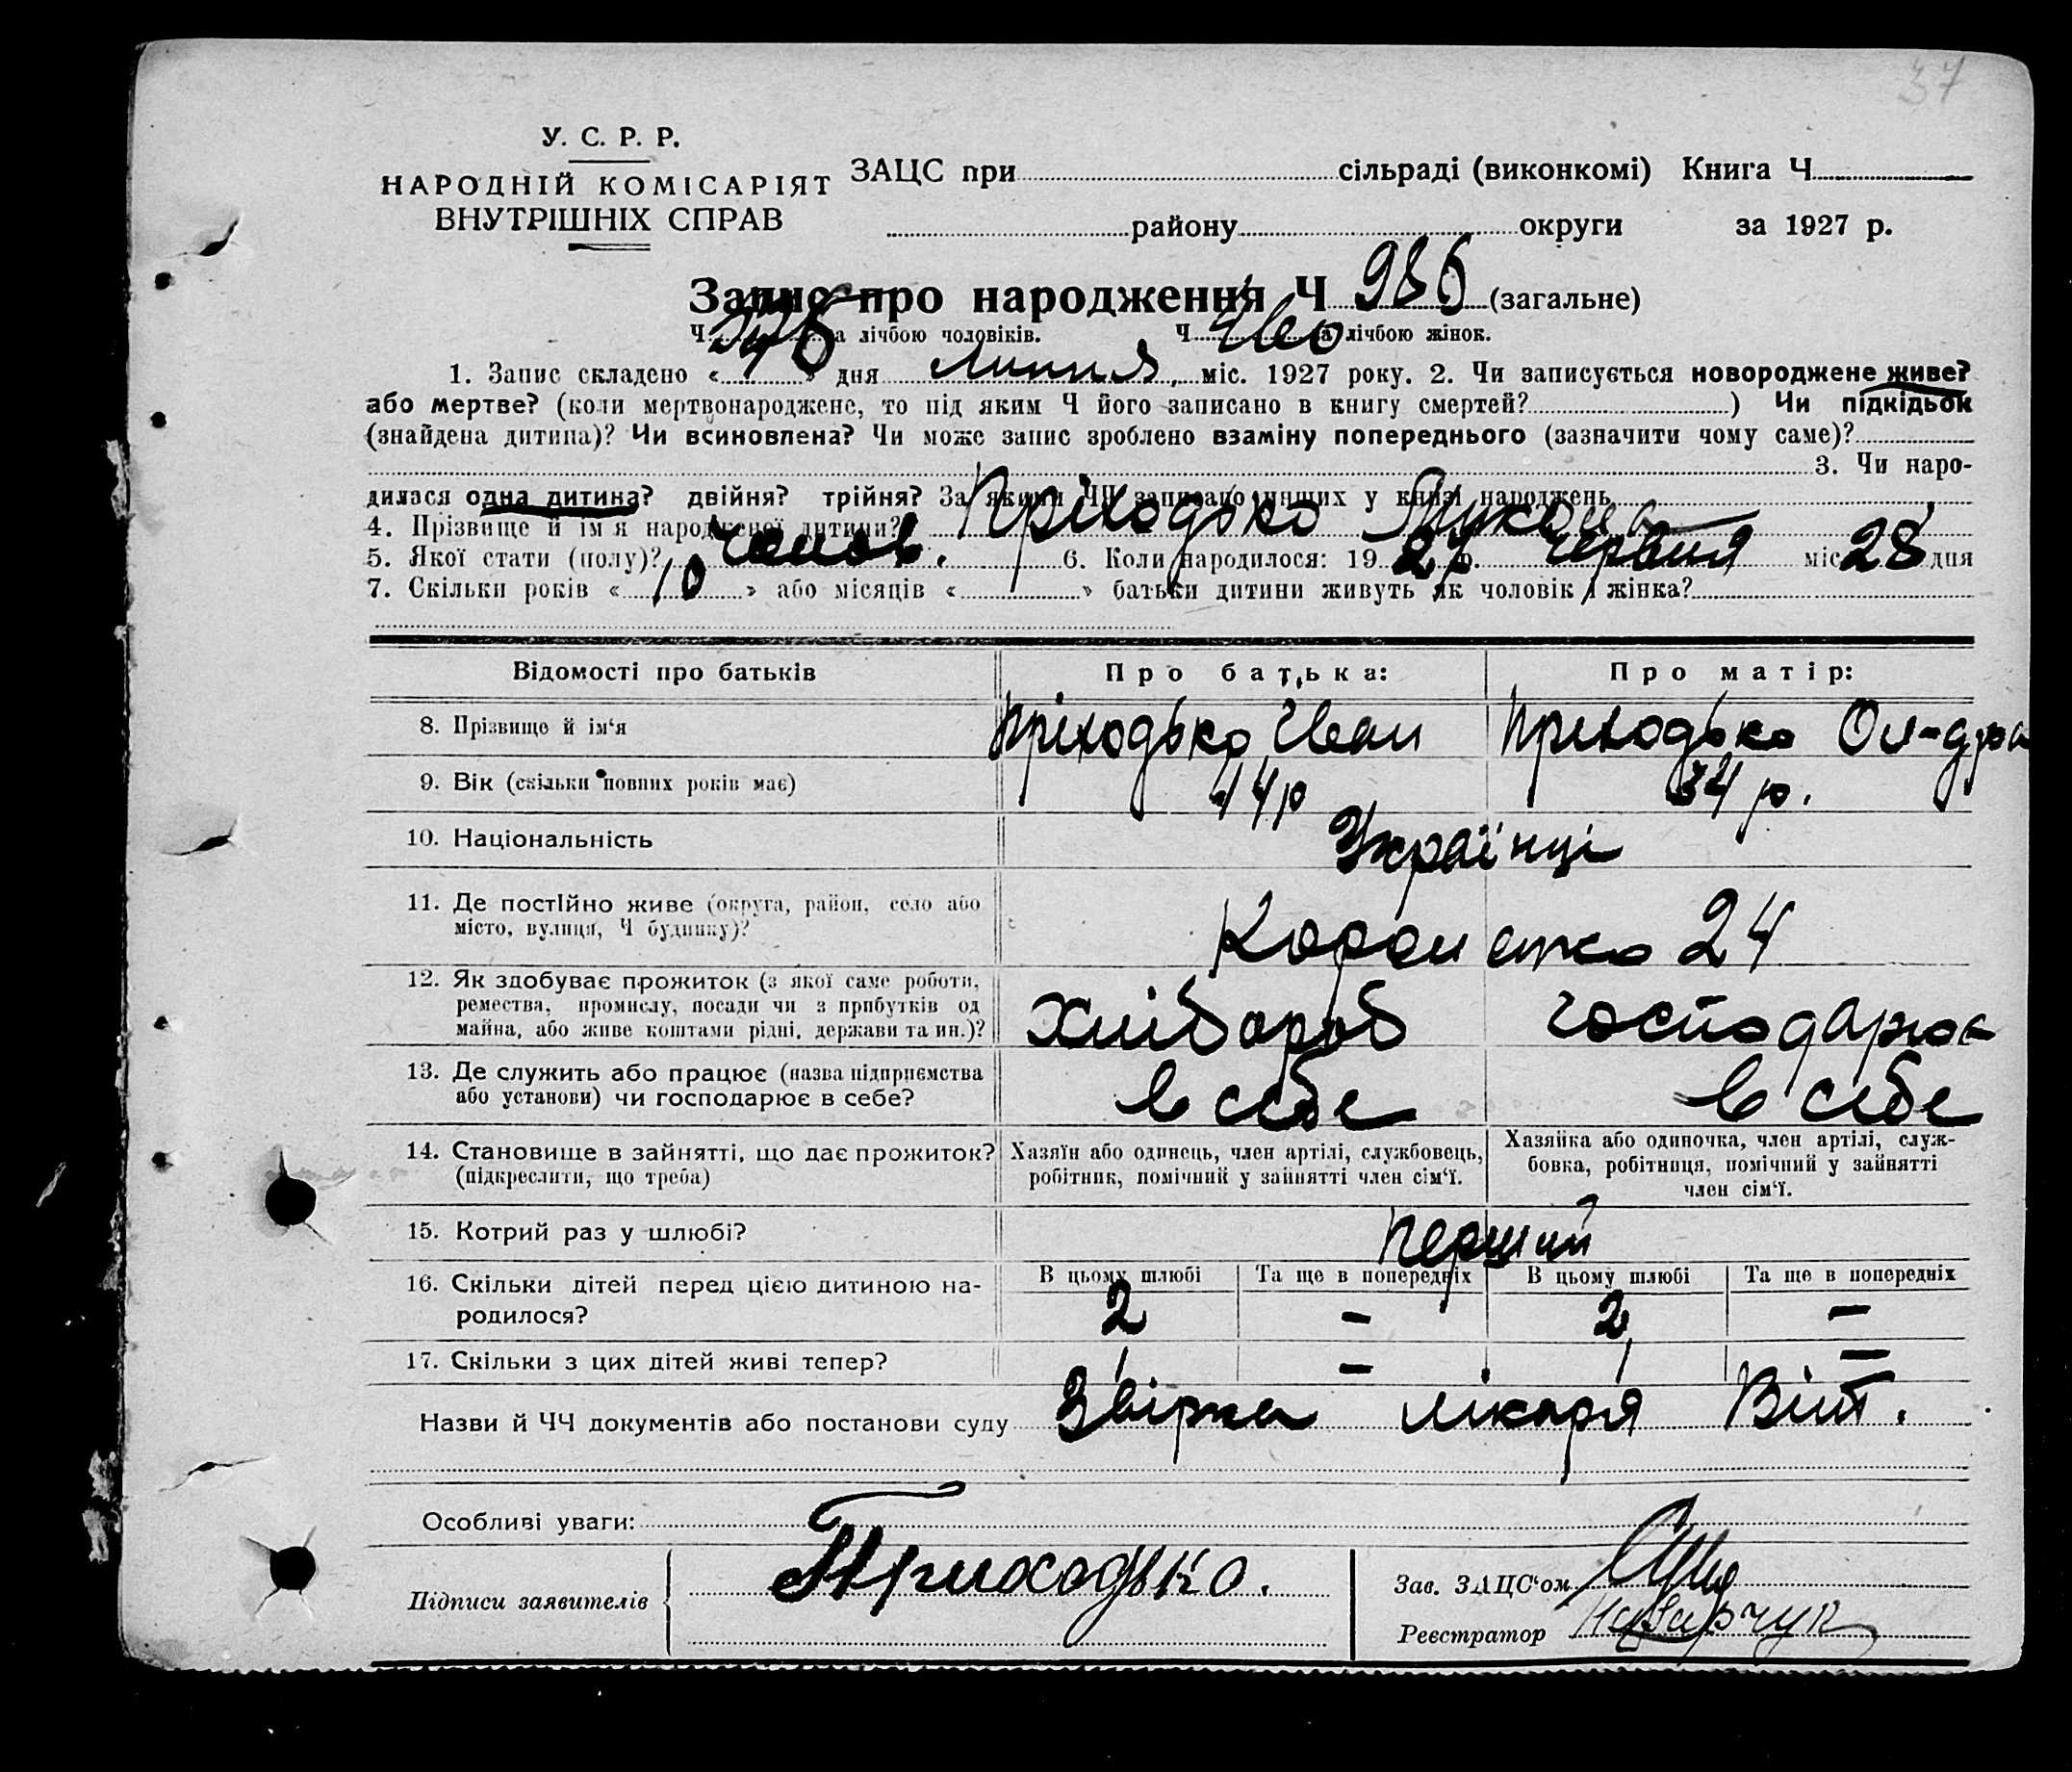 37
У. С. Р. Р.
НАРОДНІЙ КОМІСАРІЯТ
ВНУТРІШНІХ СПРАВ
ЗАЦС при сільраді (виконкомі) Книга Ч
району округи за 1927 р.
Запис про народження Ч 986 (загальне)
Ч за лічбою чоловіків. Ч за лічбою жінок.
1. Запис складено « » дня Липня міс. 1927 року. 2. Чи записується новороджене живе?
або мертве? (коли мертвонароджене, то під яким Ч його записано в книгу смертей? ) Чи підкідьок
(знайдена дитина)? Чи всиновлена? Чи може запис зроблено взаміну попереднього (зазначити чому саме)?
3. Чи наро-
дилася одна дитина? двійня? трійня? За якими ЧЧ записано инших у книзі народжень
4. Прізвище й ім'я народженої дитини? Пріходько
5. Якої стати (полу)? чолов. 6. Коли народилося: 1927 р. червня міс 28 дня
7. Скільки років « 10 » або місяців « » батьки дитини живуть як чоловік і жінка?
Відомості про батьків Про батька: Про матір:
8. Прізвище й ім'я Пріходько Іван Приходько Ол-дра
9. Вік (скільки повних років має) 44 р 34 р.
10. Національність Українці
11. Де постійно живе (округа, район, село або
місто, вулиця, Ч будинку)? 24
12. Як здобуває прожиток (з якої саме роботи,
ремества, промислу, посади чи з прибутків од
майна, або живе коштами рідні, держави та ин.)? Хлібороб господарює
13. Де служить або працює (назва підприємства
або установи) чи господарює в себе? в себе в себе
14. Становище в зайнятті, що дає прожиток?
(підкреслити, що треба)
Хазяїн або одинець, член артілі, службовець,
робітник, помічний у зайнятті член сім'ї.
Хазяйка або одиночка, член артілі, служ-
бовка, робітниця, помічний у зайнятті
член сім'ї.
15. Котрий раз у шлюбі? Перший
В цьому шлюбі Та ще в попередніх В цьому шлюбі Та ще в попередніх
16. Скільки дітей перед цією дитиною на-
родилося? 2 – 2 –
17. Скільки з цих дітей живі тепер? 1 – 1 –
Назви й ЧЧ документів або постанови суду лікаря
Особливі уваги:
Підписи заявителів Приходько.
Зав. ЗАЦС'ом
Реєстратор